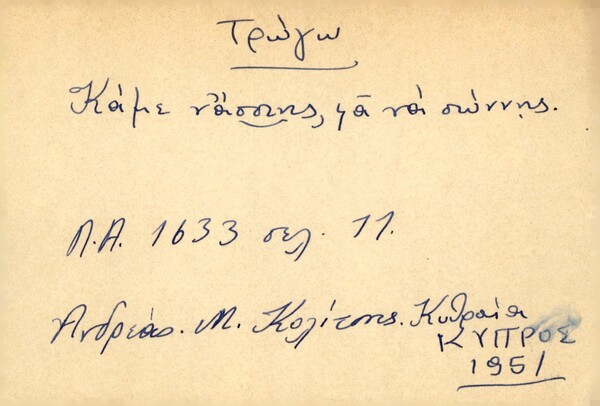 Τρώγω
Κάμε νἄσσης, γιὰ νὰ σώννῃς.
Λ.Α. 1633 σελ. 11.
Ἀνδρέας. Μ. Κολίτσης. Κυθραία
ΚΥΠΡΟΣ
1951